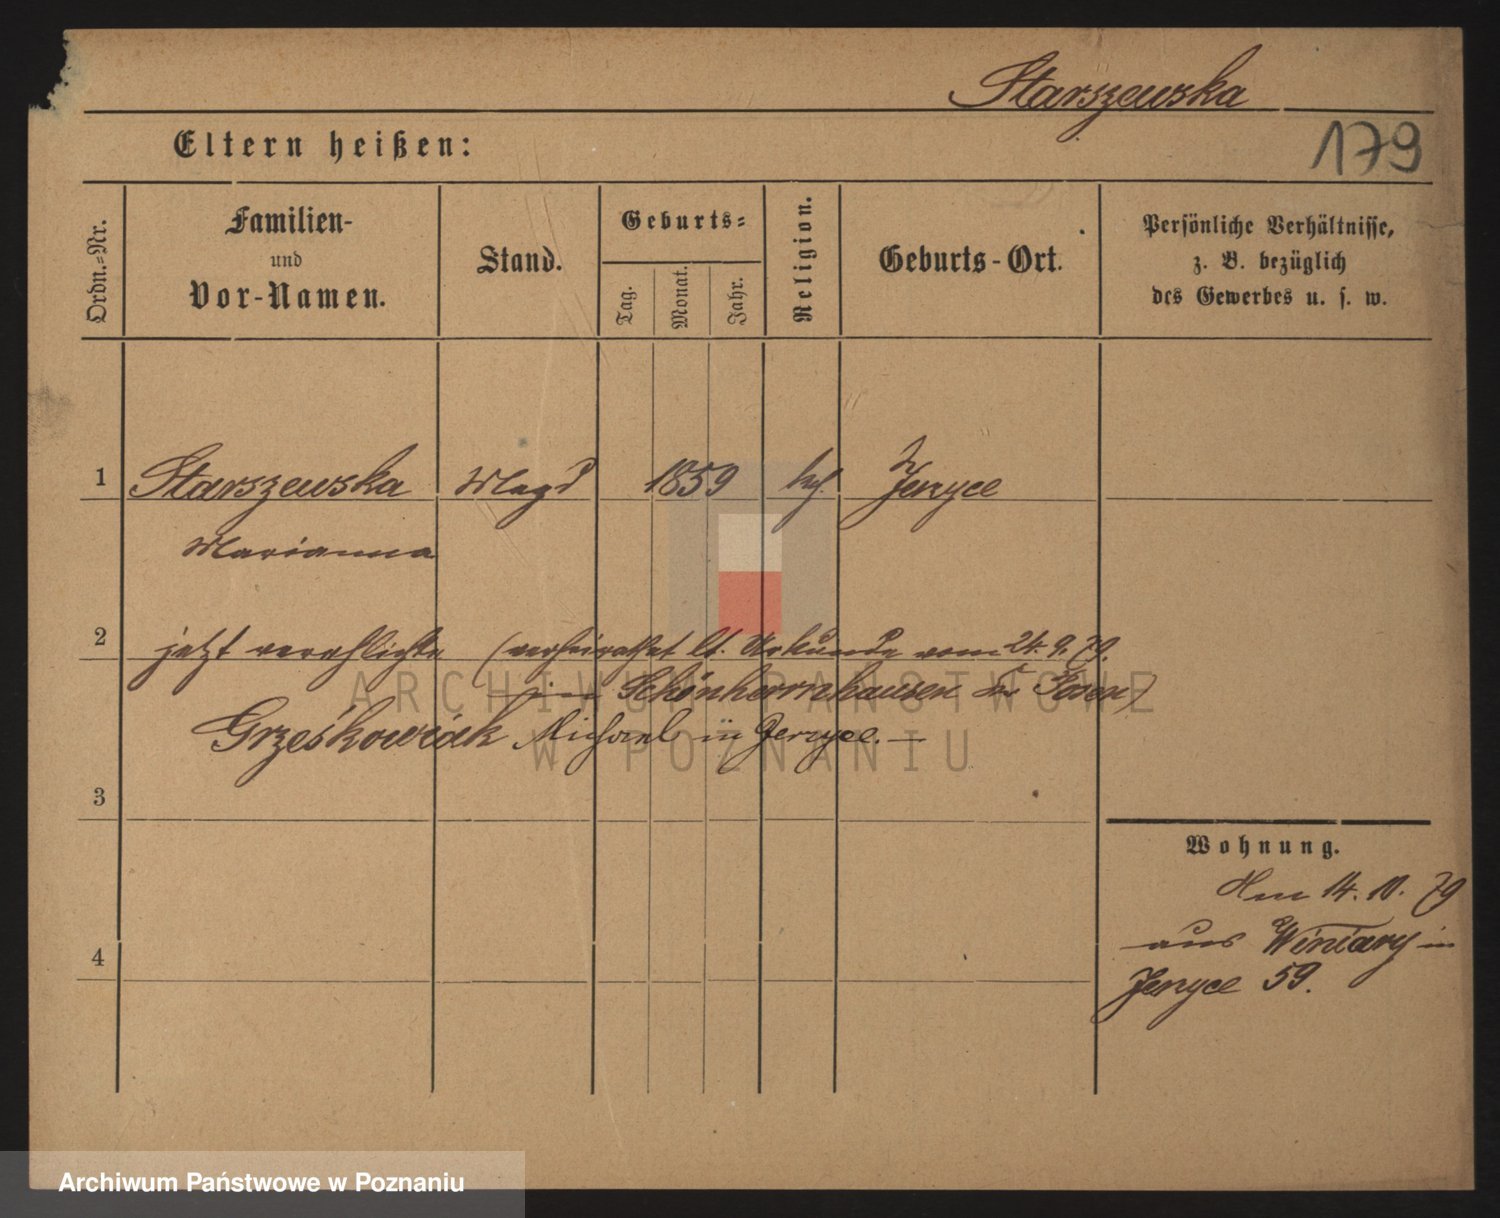 Starszewska
Eltern heißen:
179
Ordn.-Nr.
Familien-
und
Vor-Namen.
Stand.
Geburts-
Tag.
Monat.
Jahr.
Religion.
Geburts-Ort.
Persönliche Verhältnisse,
z. B. bezüglich
des Gewerbes u. s. w.
1 Starszewska Magd 1859 kath. Jerzyce
Marianna
2 jetzt verehlichte (verheirathet lt. Urkunde vom 24.9.79.
Schönherrnhausen Kr Posen)
Grześkowiak Michael in Jerzyce.
3
Wohnung.
Den 14. 10. 79
aus Winiary in
Jerzyce 59.
4
ARCHIWUM PAŃSTWOWE
W POZNANIU
Archiwum Państwowe w Poznaniu